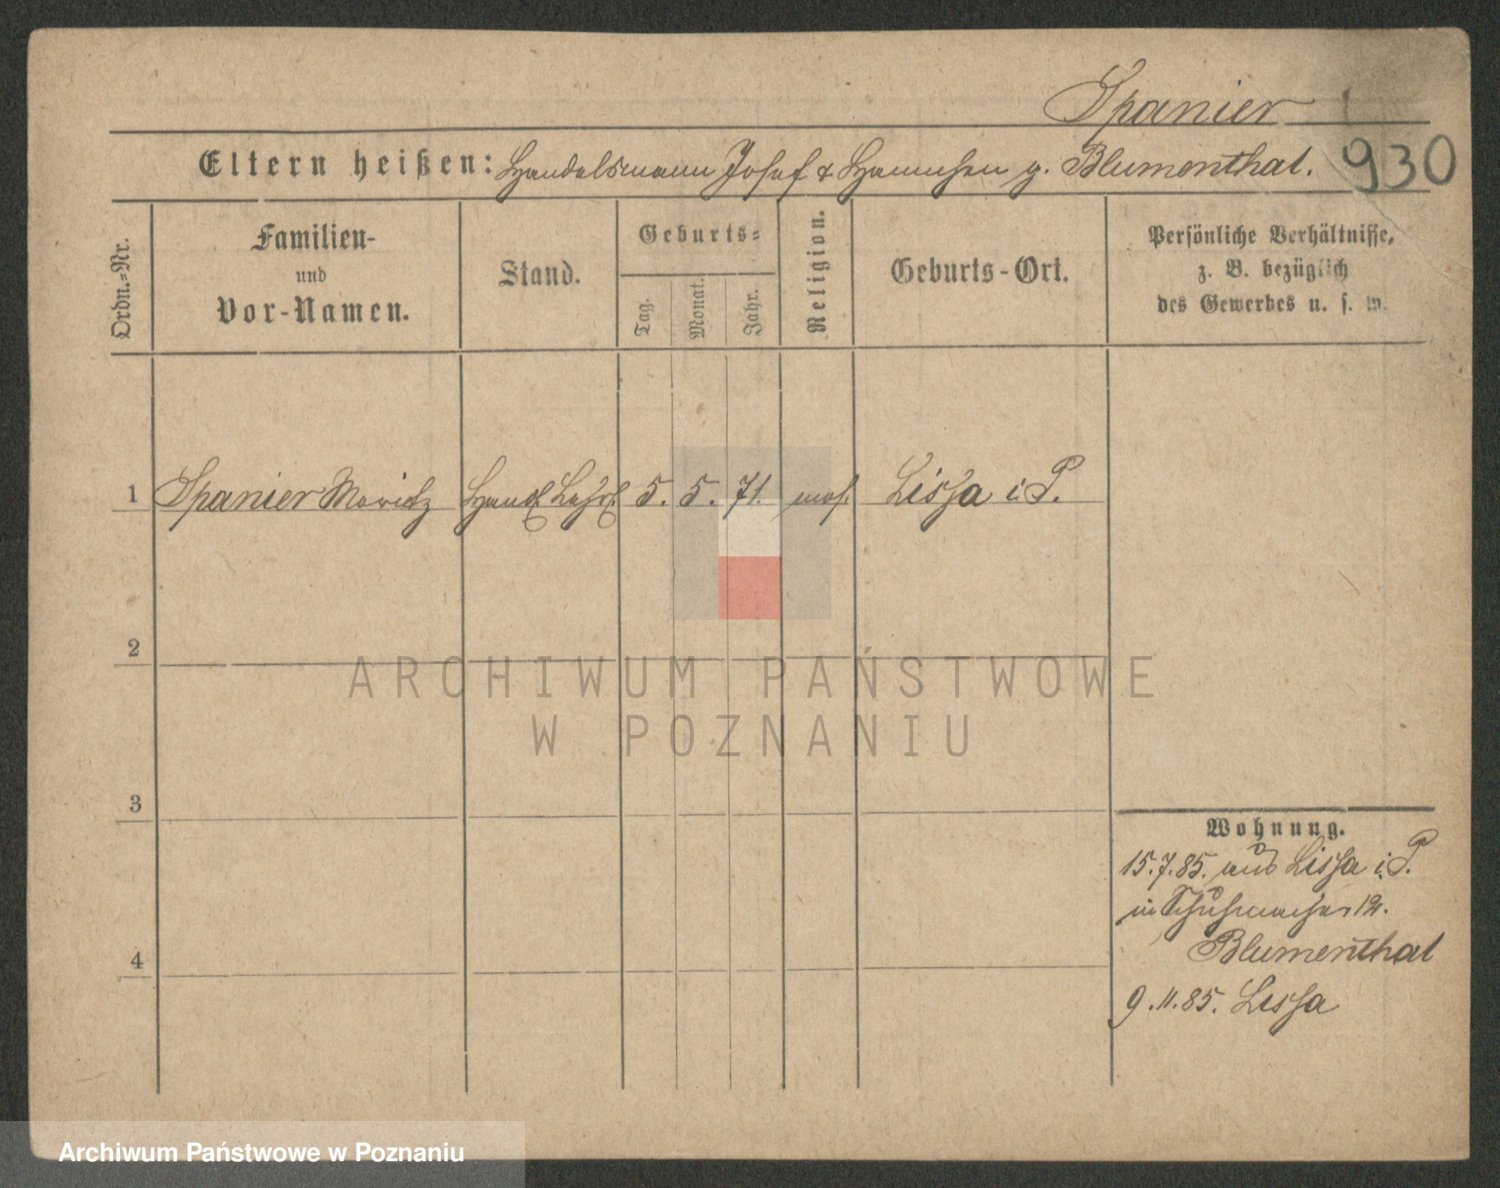 Spanier
930
Eltern heißen: Handelsmann Josef & Hannchen g. Blumenthal.
Ordn.-Nr.
Familien-
und
Vor-Namen.
Stand.
Geburts=
Tag.
Monat.
Jahr.
Religion.
Geburts-Ort.
Persönliche Verhältnisse,
z. B. bezüglich
des Gewerbes u. s. w.
1 Spanier Moritz Handl Lehrl 5. 5. 71. mos. Lissa i. P.
2
3
4
Wohnung.
15.7.85. aus Lissa i. P.
in Schuhmacher 12.
Blumenthal
9.11.85. Lissa
ARCHIWUM PAŃSTWOWE
W POZNANIU
Archiwum Państwowe w Poznaniu